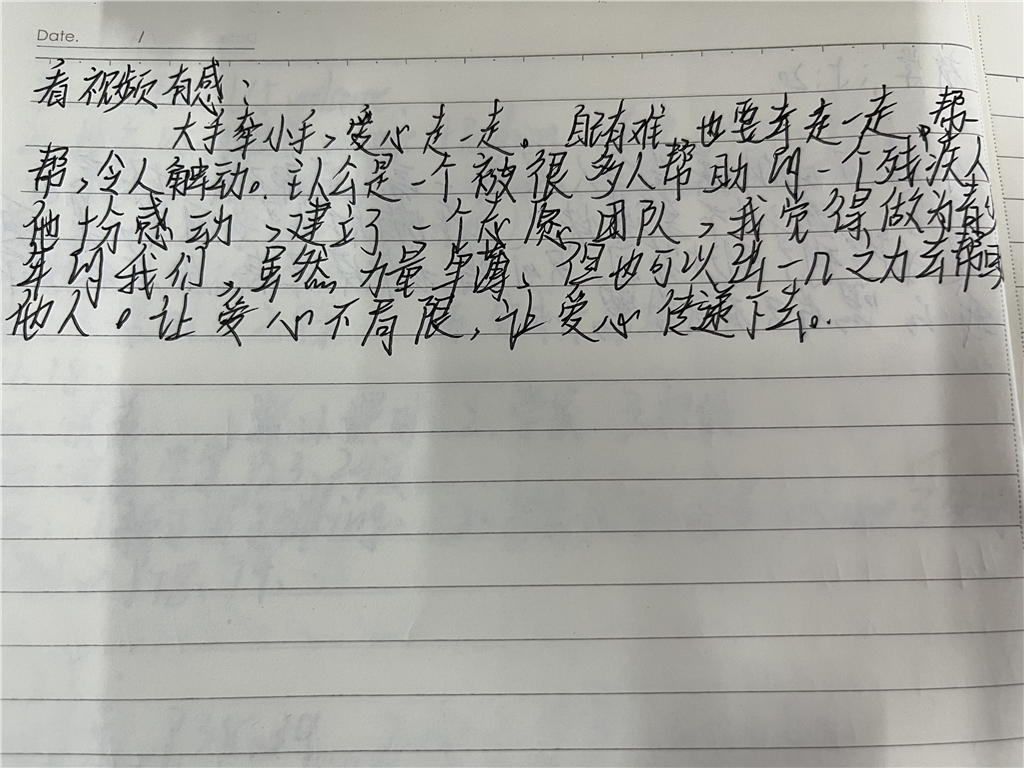 Date. /
看视频有感:
大手牵小手,爱心走一走。自己有难,也要牵走一走,帮一
帮,令人触动。主人公是一个被很多人帮助的一个残疾人
他十分感动,建立了一个志愿团队,我觉得做为青少
年的我们,虽然力量单薄,但也可以出一几之力去帮助
他人。让爱心不局限,让爱心传递下去。